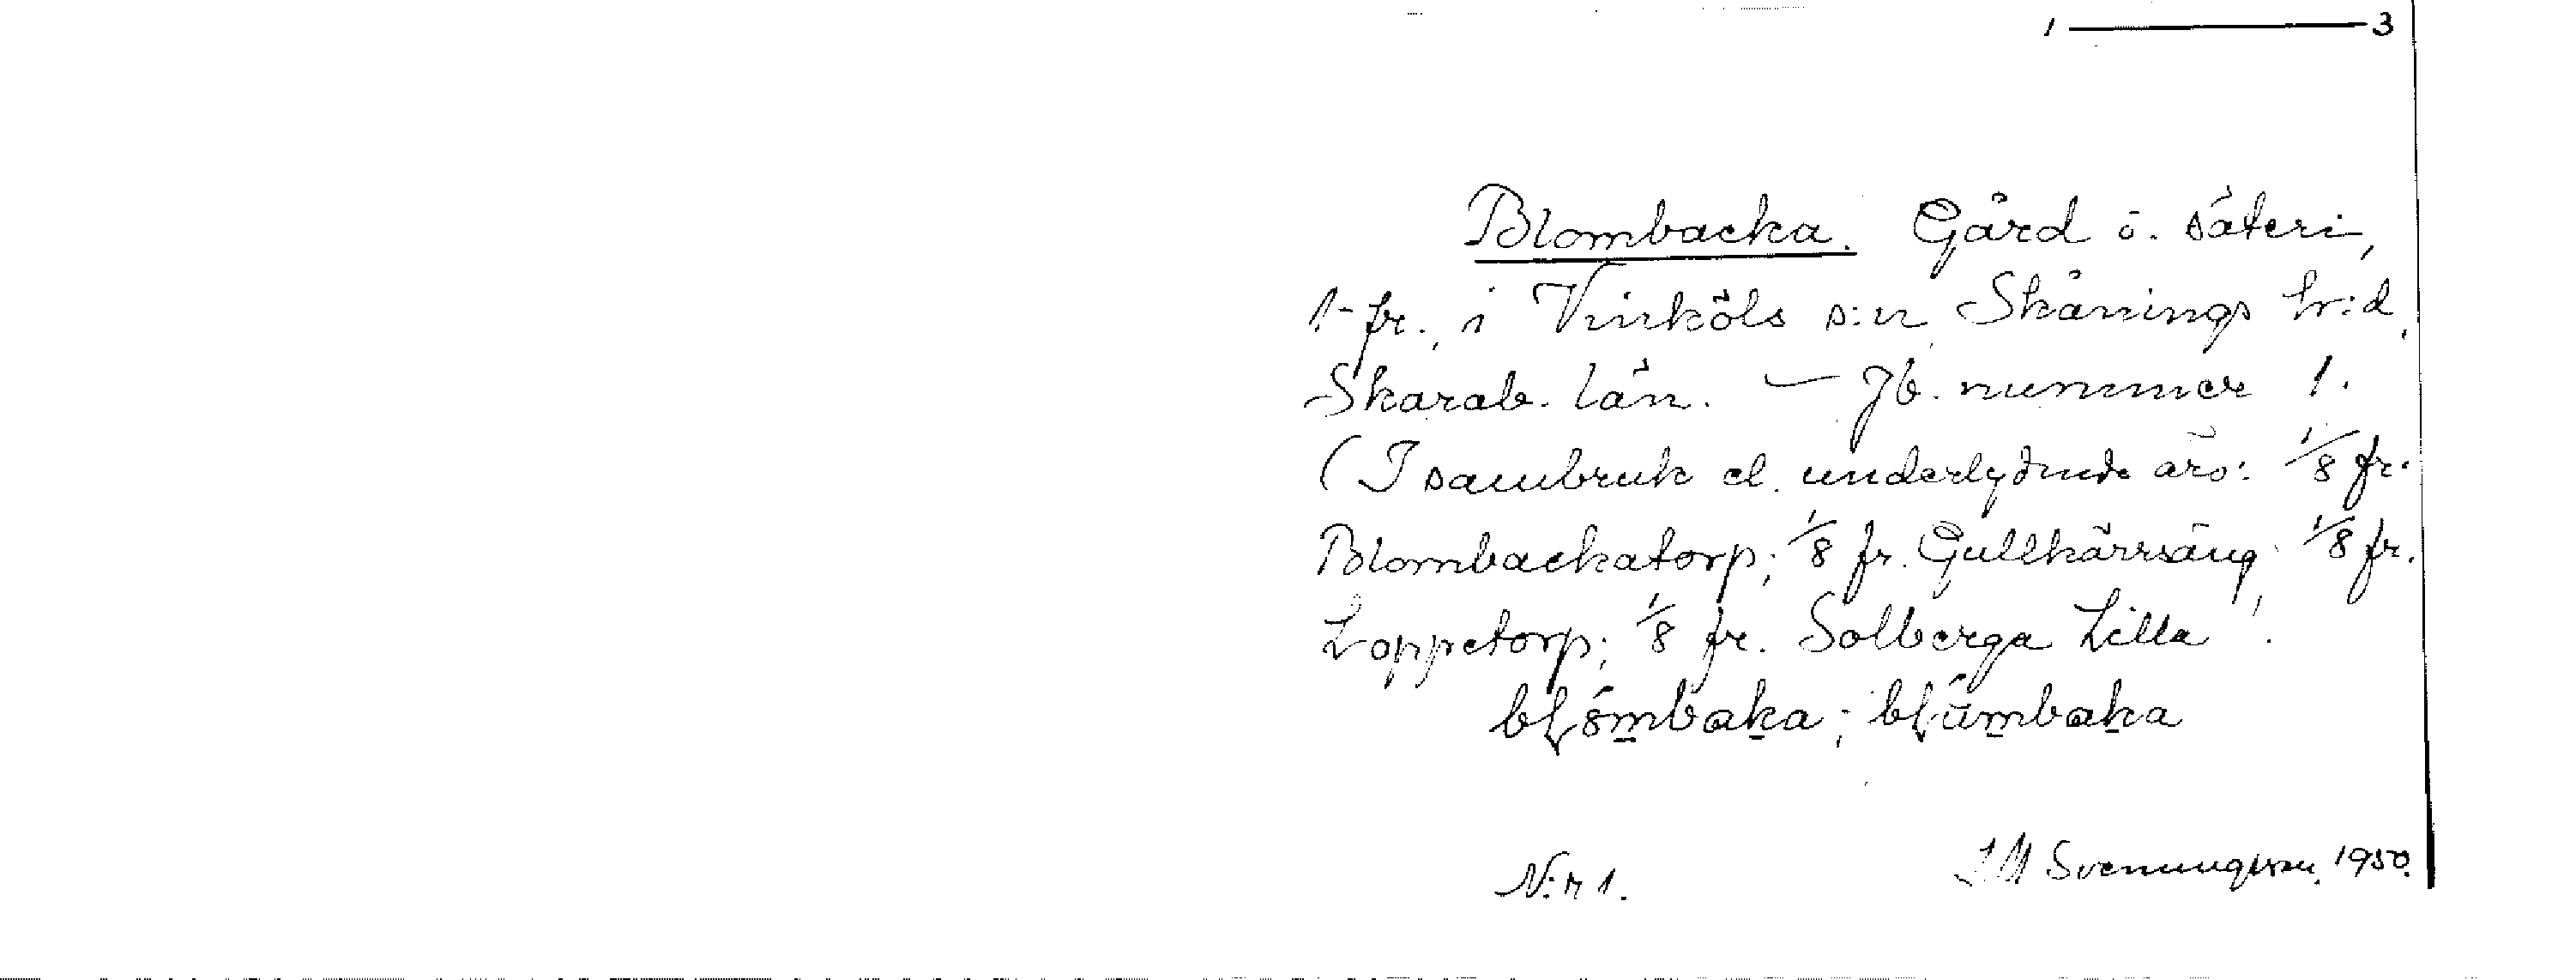 1 — 3
Blombacka. Gård o. säteri,
1-fr., i Vinköls s:n, Skånings hr:d,
Skarab. län. — Jb. nummer 1.
(I sambruk el. underlydande äro: 1/8 fr.
Blombackatorp; 1/8 fr. Gullkärräng; 1/8 fr.
Loppetorp; 1/8 fr. Solberga Lilla).
N:r 1.
Svenungsson, 1950.